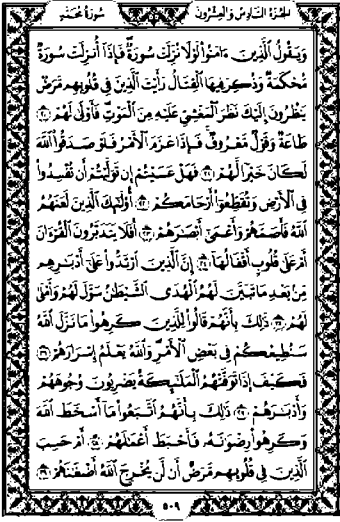 الجزء السادس والعشرون سورة محمد
وَيَقُولُ الَّذِينَ ءَامَنُوا لَوْلَا نُزِّلَتْ سُورَةٌ فَإِذَا أُنزِلَتْ سُورَةٌ
مُّحْكَمَةٌ وَذُكِرَ فِيهَا الْقِتَالُ رَأَيْتَ الَّذِينَ فِي قُلُوبِهِم مَّرَضٌ
يَنظُرُونَ إِلَيْكَ نَظَرَ الْمَغْشِيِّ عَلَيْهِ مِنَ الْمَوْتِ فَأَوْلَىٰ لَهُمْ ٢٠
طَاعَةٌ وَقَوْلٌ مَّعْرُوفٌ فَإِذَا عَزَمَ الْأَمْرُ فَلَوْ صَدَقُوا اللَّهَ
لَكَانَ خَيْرًا لَّهُمْ ٢١ فَهَلْ عَسَيْتُمْ إِن تَوَلَّيْتُمْ أَن تُفْسِدُوا
فِي الْأَرْضِ وَتُقَطِّعُوا أَرْحَامَكُمْ ٢٢ أُولَٰئِكَ الَّذِينَ لَعَنَهُمُ
اللَّهُ فَأَصَمَّهُمْ وَأَعْمَىٰ أَبْصَٰرَهُمْ ٢٣ أَفَلَا يَتَدَبَّرُونَ الْقُرْءَانَ
أَمْ عَلَىٰ قُلُوبٍ أَقْفَالُهَا ٢٤ إِنَّ الَّذِينَ ارْتَدُّوا عَلَىٰ أَدْبَٰرِهِم
مِّن بَعْدِ مَا تَبَيَّنَ لَهُمُ الْهُدَى الشَّيْطَٰنُ سَوَّلَ لَهُمْ وَأَمْلَىٰ
لَهُمْ ٢٥ ذَٰلِكَ بِأَنَّهُمْ قَالُوا لِلَّذِينَ كَرِهُوا مَا نَزَّلَ اللَّهُ
سَنُطِيعُكُمْ فِي بَعْضِ الْأَمْرِ وَاللَّهُ يَعْلَمُ إِسْرَارَهُمْ ٢٦
فَكَيْفَ إِذَا تَوَفَّتْهُمُ الْمَلَٰئِكَةُ يَضْرِبُونَ وُجُوهَهُمْ
وَأَدْبَٰرَهُمْ ٢٧ ذَٰلِكَ بِأَنَّهُمُ اتَّبَعُوا مَا أَسْخَطَ اللَّهَ
وَكَرِهُوا رِضْوَٰنَهُ فَأَحْبَطَ أَعْمَٰلَهُمْ ٢٨ أَمْ حَسِبَ
الَّذِينَ فِي قُلُوبِهِم مَّرَضٌ أَن لَّن يُخْرِجَ اللَّهُ أَضْغَٰنَهُمْ ٢٩
٥٠٩